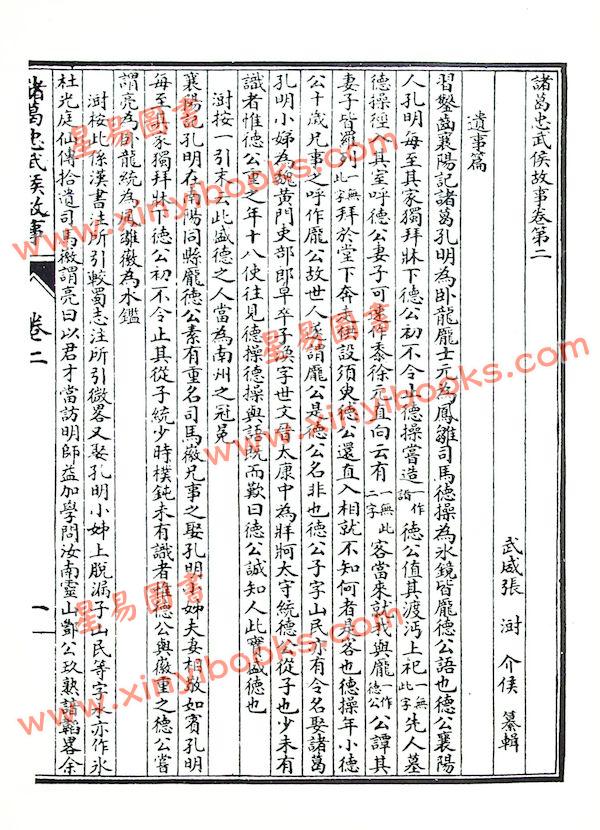 諸葛忠武侯故事卷第二
武威張 澍 介侯 纂輯
遺事篇
習鑿齒襄陽記諸葛孔明為卧龍龐士元為鳳雛司馬德操為氷鏡皆龐德公語也德公襄陽
人孔明每至其家獨拜牀下德公初不令止德操嘗造一作詣德公值其渡沔上祀一無此字先人墓
德操徑其室呼德公妻子可速作黍徐元直向云有一無此二字客當來就我與龐一作德公公譚其
妻子皆羅列一無此字拜於堂下奔走供設須臾德公還直入相就不知何者是客也德操年小德
公十歲兄事之呼作龐公故世人遂謂龐公是德公名非也德公子字山民亦有令名娶諸葛
孔明小姊為魏黃門吏部郎早卒子渙字世文晉太康中為牂牁太守統德公從子也少未有
識者惟德公重之年十八使往見德操德操與語既而歎曰德公誠知人此實盛德也
澍按一引末云此盛德之人當為南州之冠冕
襄陽記孔明在南陽同縣龐德公素有重名司馬徽兄事之娶孔明小姊夫妻相敬如賓孔明
每至其家獨拜牀下德公初不令止其從子統少時樸鈍未有識者惟德公與徽重之德公嘗
謂亮為卧龍統為鳳雛徽為水鑑
澍按此係漢書注所引較蜀志注所引微畧又娶孔明小姊上脫漏子山民等字水亦作氷
杜光庭仙傳拾遺司馬徽謂亮曰以君才當訪明師益加學問汝南靈山酆公玖熟諳韜畧余
諸葛忠武侯故事 卷二 一
星易图書
www.xinyibooks.com
星易图書
www.xinyibooks.com
星易图書
www.xinyibooks.com